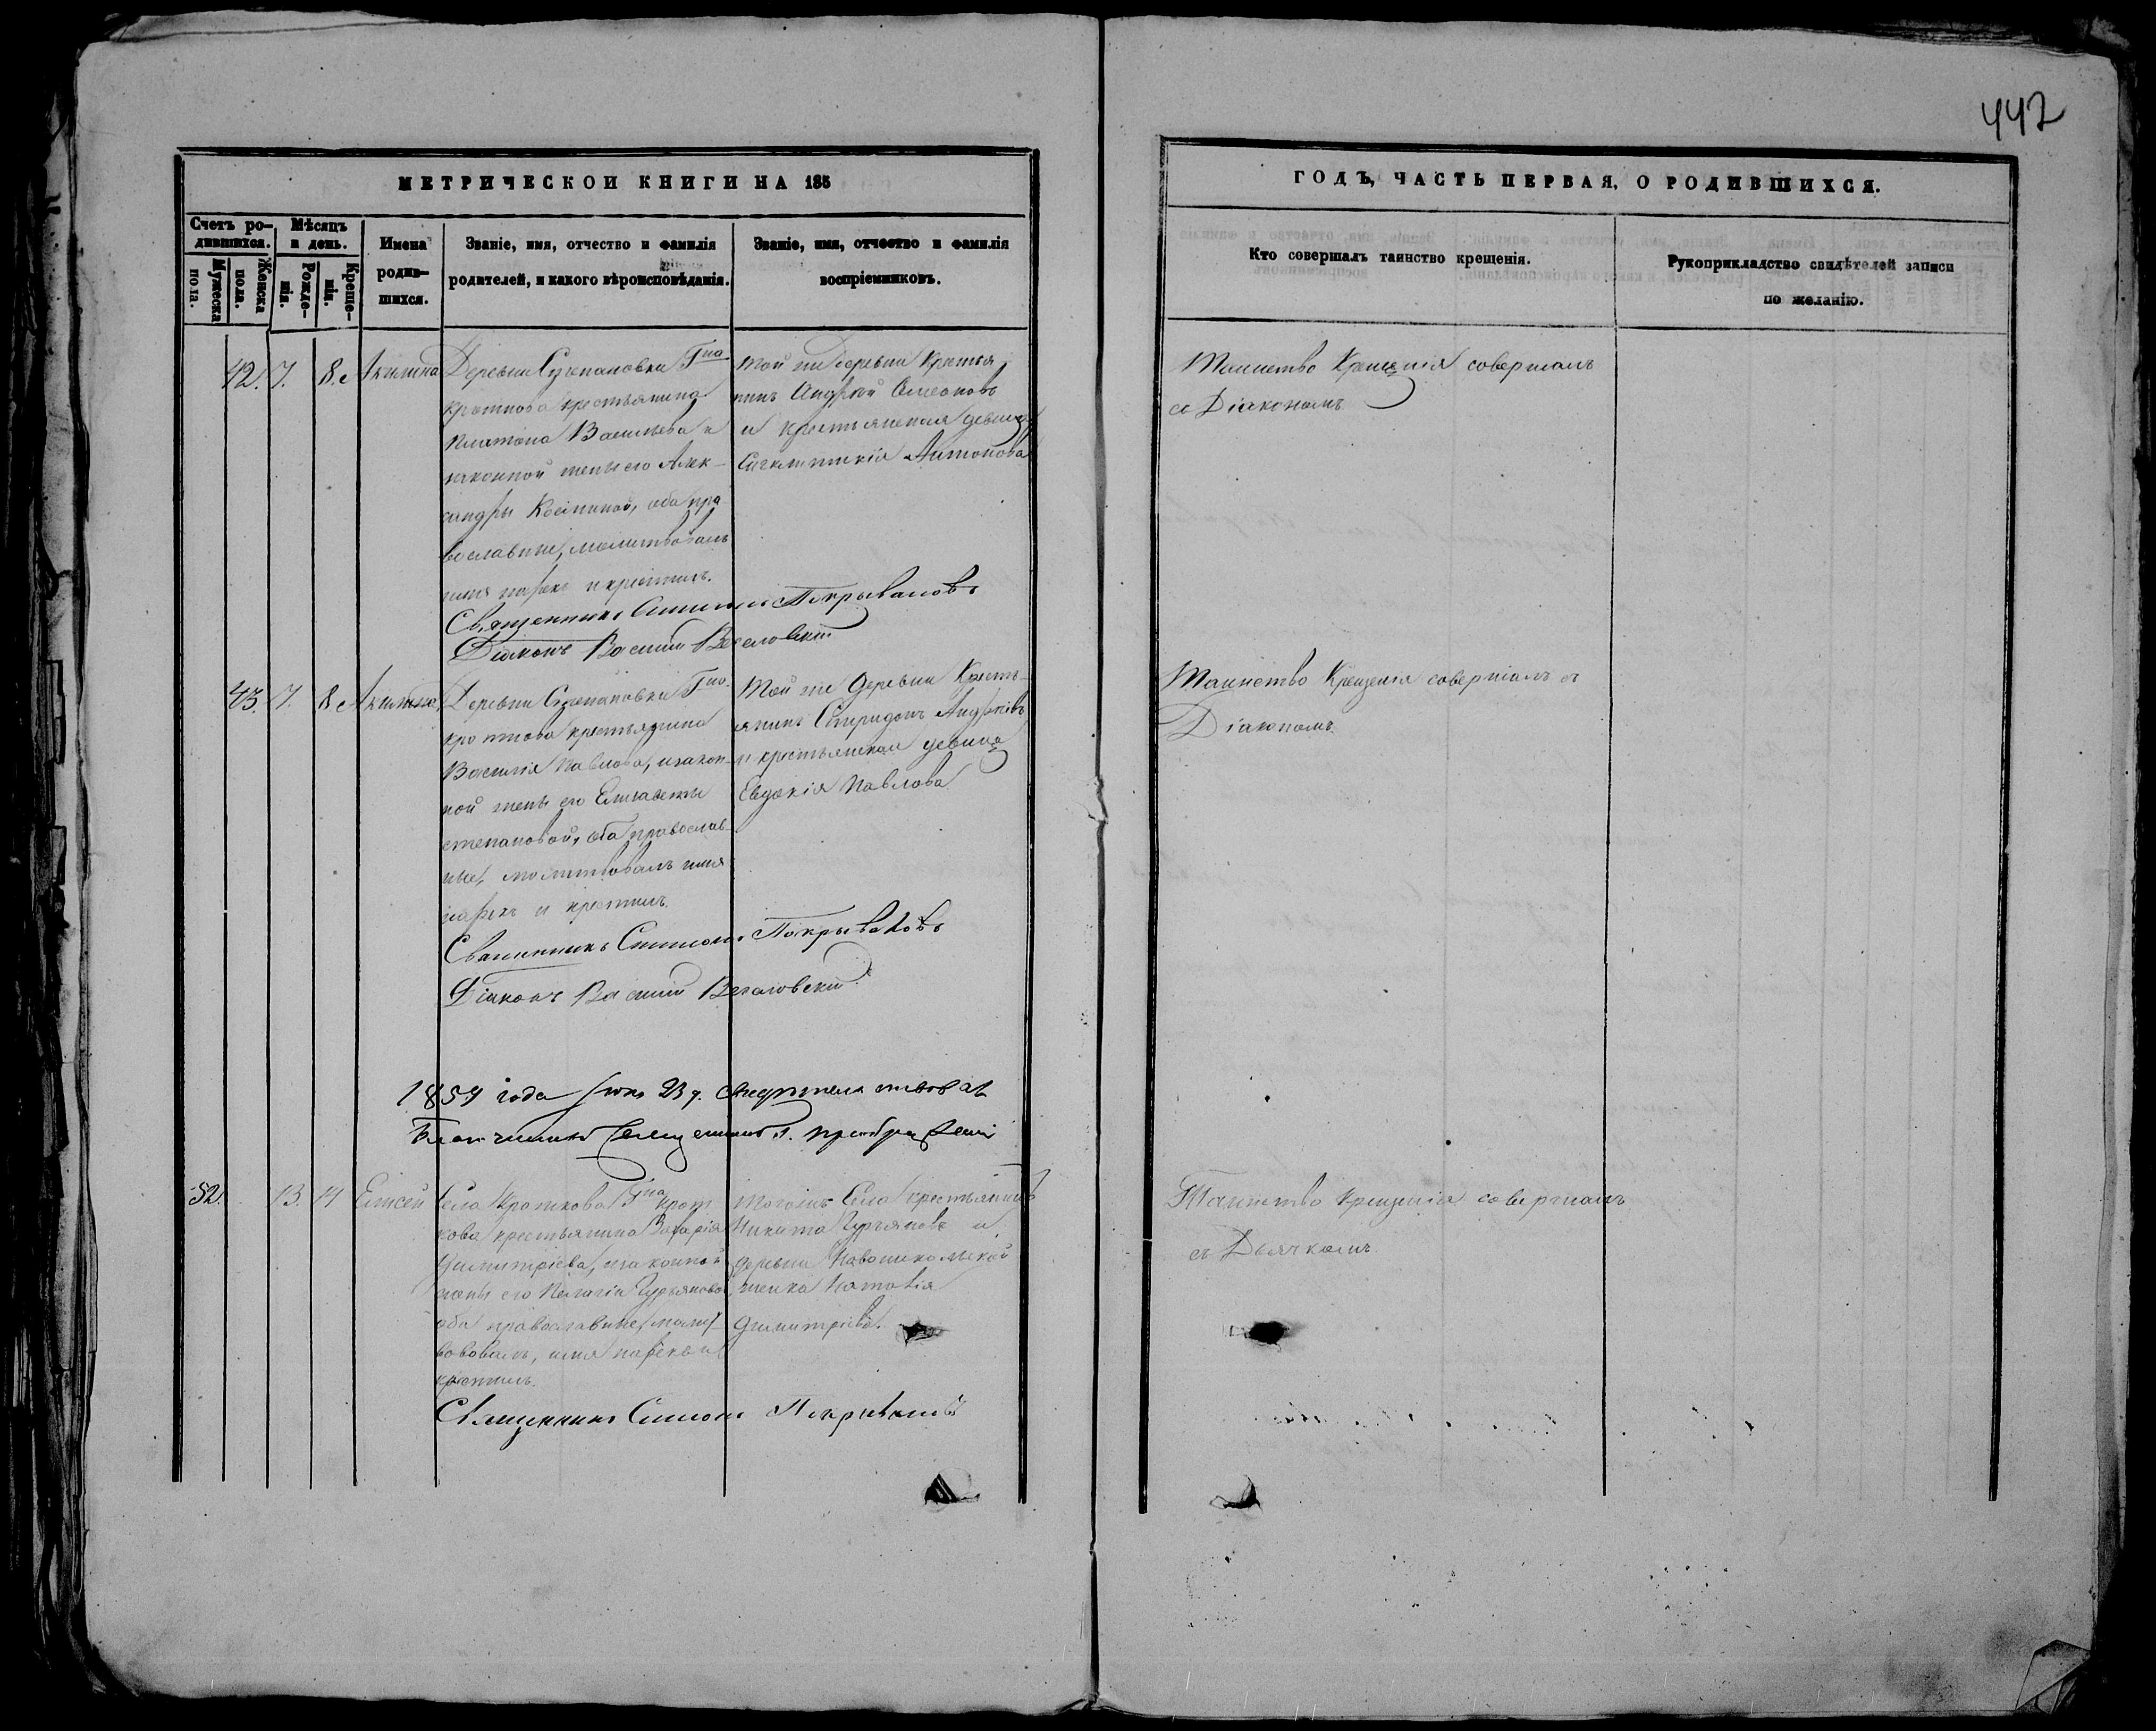 442
МЕТРИЧЕСКОЙ КНИГИ НА 185
ГОДЪ, ЧАСТЬ ПЕРВАЯ, О РОДИВШИХСЯ.
Счетъ ро-
дившихся.
Мужеска
пола.
Женска
пола.
Мѣсяцъ
и день.
Рожде-
нія.
Креще-
нія.
Имена
родив-
шихся.
Званіе, имя, отчество и фамилія
родителей, и какого вѣроисповѣданія.
Званіе, имя, отчество и фамилія
воспріемниковъ.
Кто совершалъ таинство крещенія.
Рукоприкладство свидѣтелей записи
по желанію.
42. 7. 8. Акилина
Деревни Степановки Гна
Кроткова крестьянина
Платона Васильева и
законной жены его Алек-
сандры Косминой, оба пра
вославные, молитвовалъ
имя нарекъ и крестилъ.
Священникъ Симеонъ Покрываловъ
Діаконъ Василій Веселовскій
Той же деревни Крестья
нинъ Андрей Симеоновъ
и крестьянская девица
Синклитикія Антонова
Таинство Крещенія совершалъ
съ Діакономъ.
43. 7. 8 Акилина,
Деревни Степановки Гна
Кроткова крестьянина
Василія Павлова, и закон-
ной жены его Елисаветы
Степановой, оба православ-
ные, молитвовалъ имя
нарекъ и крестилъ.
Священникъ Симеонъ Покрываловъ
Діаконъ Василій Веселовскій
Той же Деревни Кресть-
янинъ Спиридонъ Андреевъ
и крестьянская девица
Евдокія Павлова
Таинство Крещенія совершалъ съ
Діакономъ.
1859 года Іюня 23 д. свидѣтельствовалъ
Благочинный Священникъ П. Преображенскій
52. 13. 14 Елисей
Села Кроткова Гна Крот
кова крестьянина Захарія
Димитріева, и законной
жены его Пелагіи Гурьяновой
оба православные, молит-
вовалъ, имя нарекъ и
крестилъ.
Священникъ Симеонъ Покрываловъ
Тогожъ Села крестьянинъ
Никита Гурьяновъ и
деревни Новоникольской
женка Наталія
Димитріева.
Таинство Крещенія совершалъ
съ Дьячкомъ.